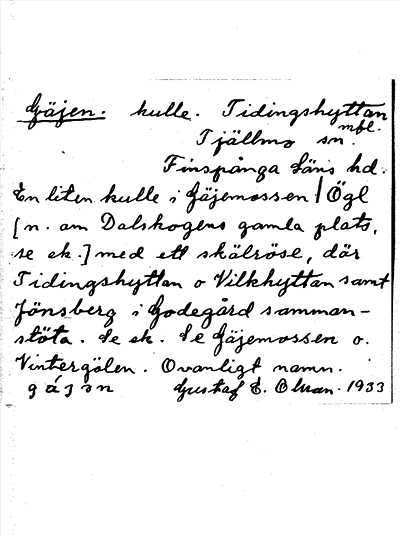 Gäjen. kulle. Tidingshyttan
mbl.
Tjällmo sn.
Finspånga läns hd.
En liten kulle i Gäjemossen | Ögl
[n. om Dalskogens gamla plats,
se ek.] med ett skälröse, där
Tidingshyttan o Vilkhyttan samt
Jönsberg i Godegård samman-
stöta. Se ek. Se Gäjemossen o.
Vintergölen. Ovanligt namn.
Gustaf E. Olman. 1933